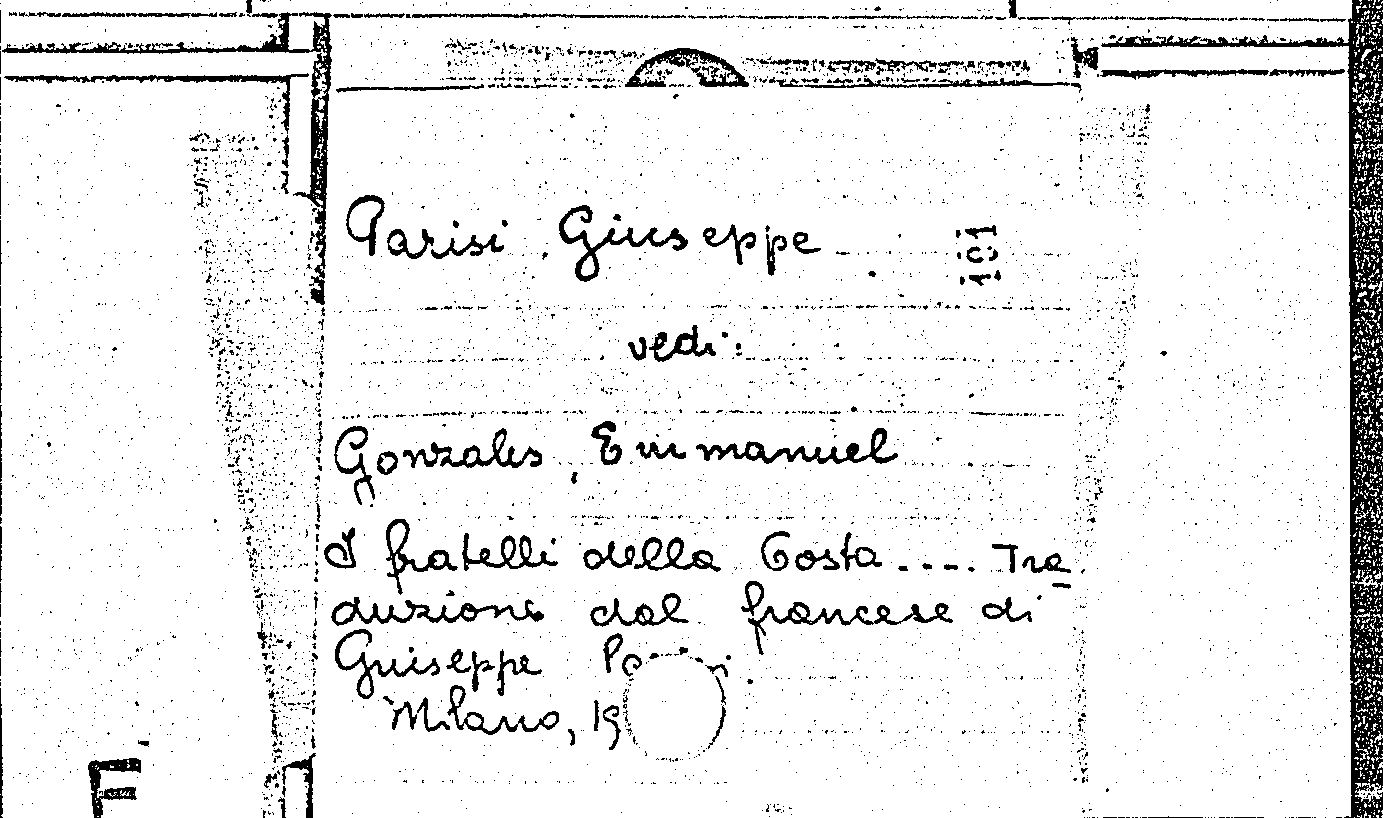 Parisi, Giuseppe
101
vedi:
Gonzales, Emmanuel
I fratelli della Costa .... Tra
duzione dal francese di
Giuseppe
Milano, 19
F